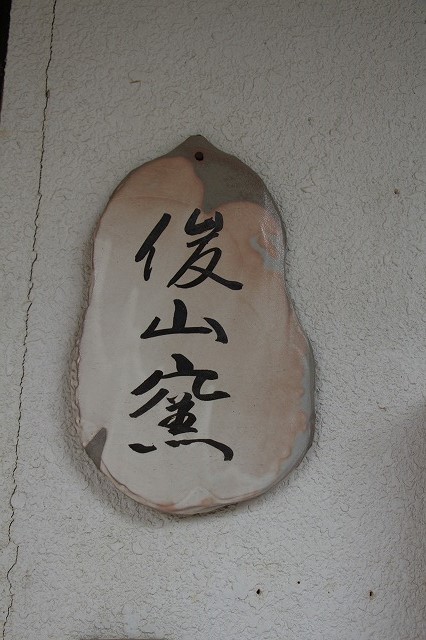 俊山窯